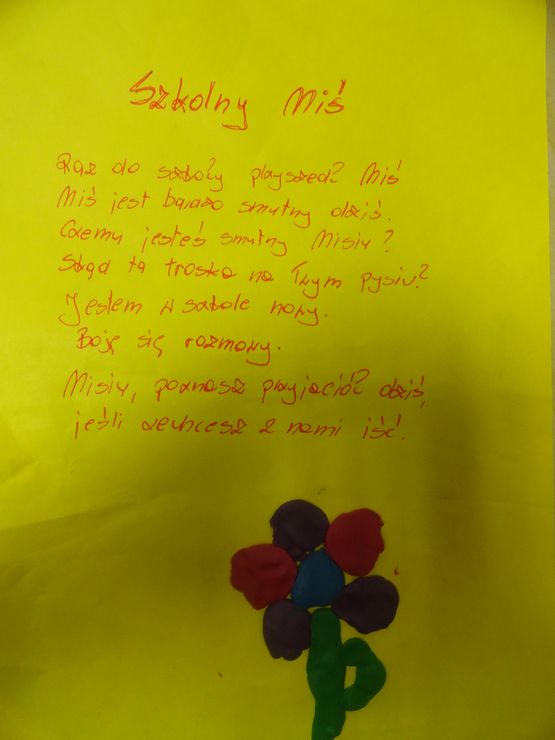 Szkolny Miś
Raz do szkoły przyszedł Miś
Miś jest bardzo smutny dziś.
Czemu jesteś smutny Misiu?
Skąd ta troska na Twym pysiu?
Jestem w szkole nowy.
Boję się rozmowy.
Misiu, poznasz przyjaciół dziś,
jeśli zechcesz z nami iść.